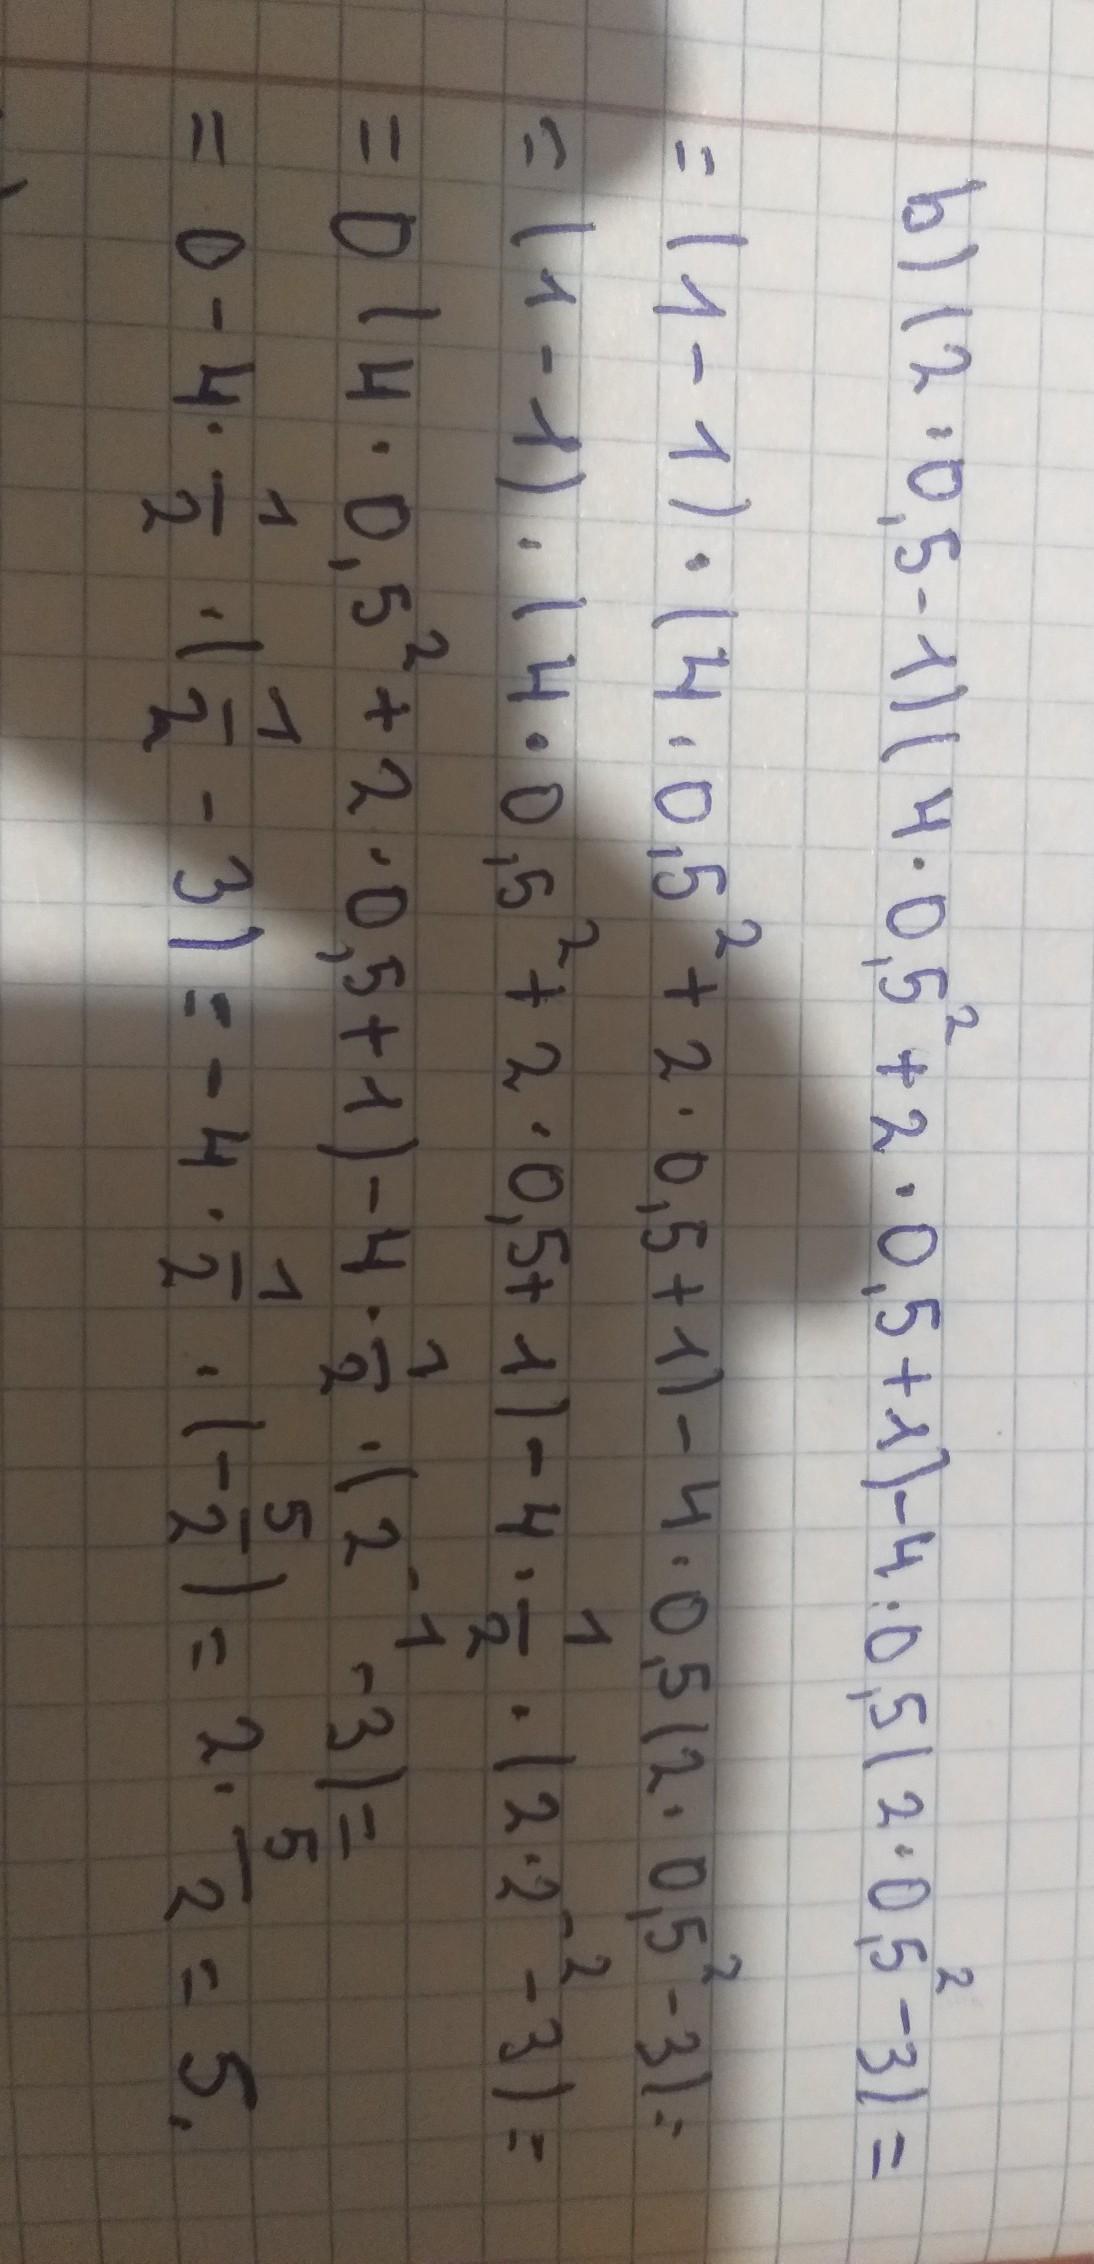 b) (2·0,5-1)(4·0,5²+2·0,5+1)-4·0,5(2·0,5²-3)=
=(1-1)·(4·0,5²+2·0,5+1)-4·0,5(2·0,5²-3)=
=(1-1)·(4·0,5²+2·0,5+1)-4·1/2·(2·2⁻²-3)=
=0(4·0,5²+2·0,5+1)-4·1/2·(2⁻¹-3)=
=0-4·1/2·(1/2-3)=-4·1/2·(-5/2)=2·5/2=5.